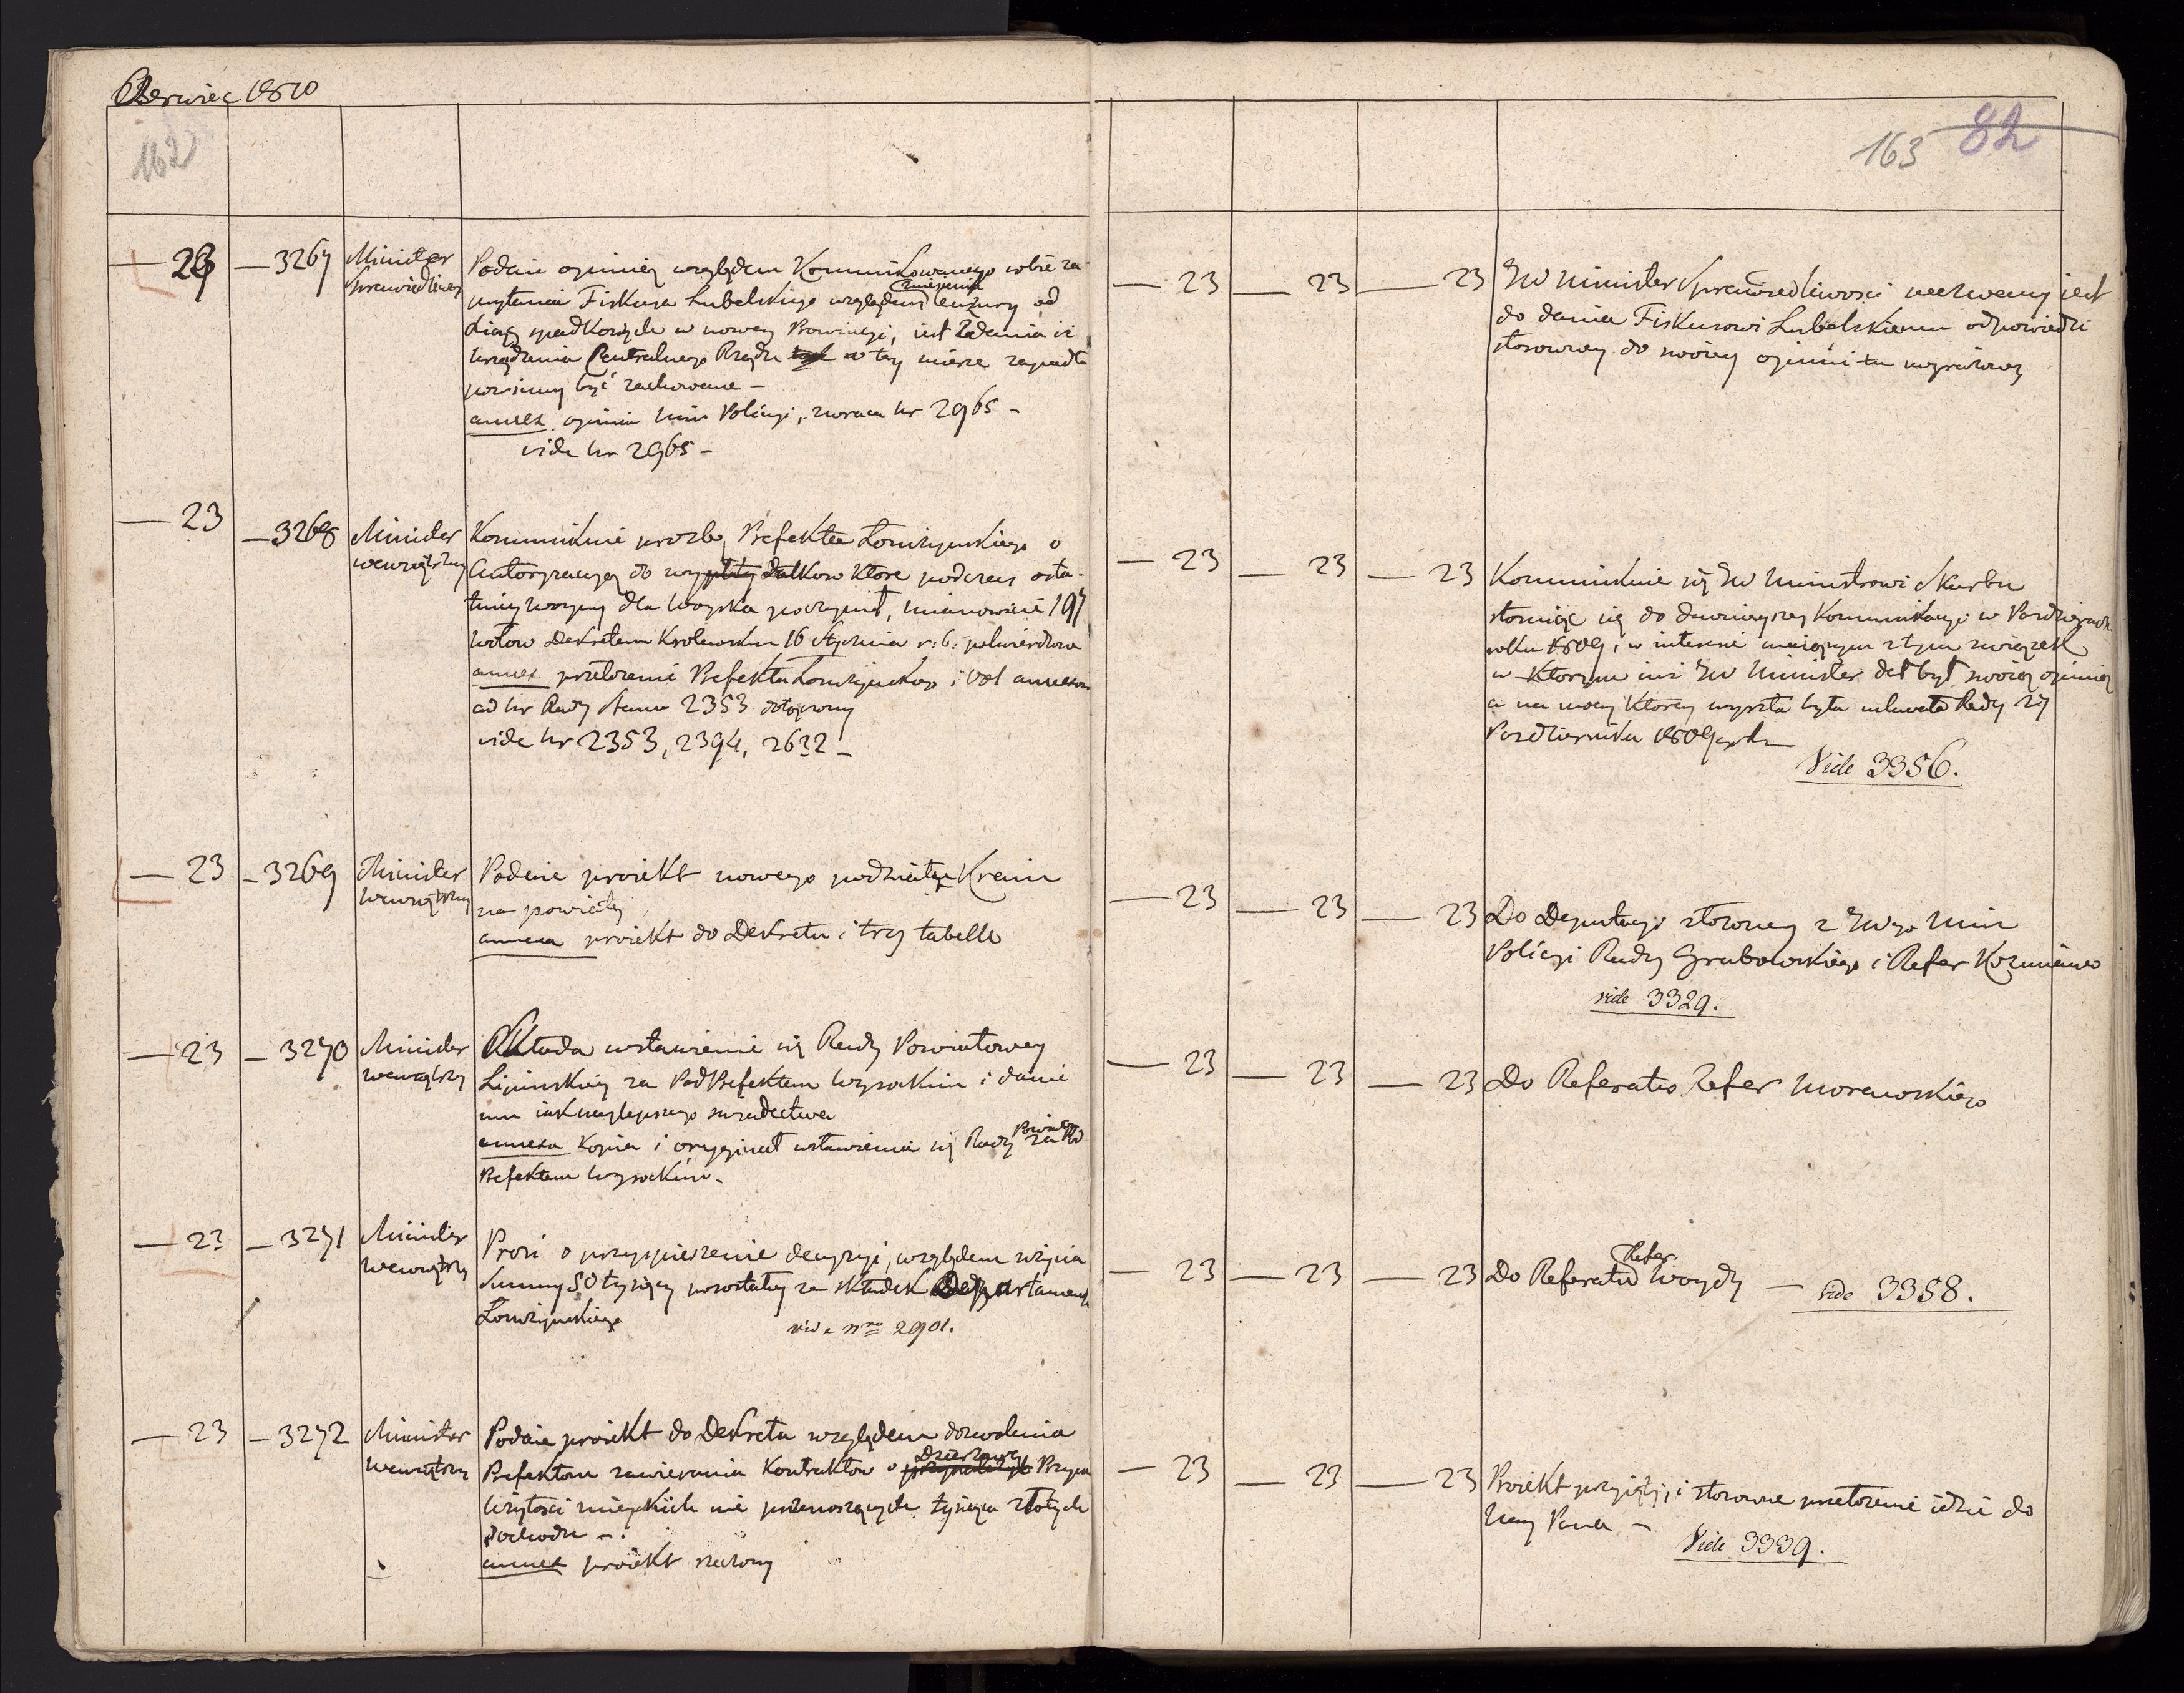 Czerwiec 1810
162
— 23 — 3267 Minister Sprawiedliwos
Podaie opinię względem Kommunikowanego sobie za-
pytania Fiskusa Lubelskiego względem zniesienia cenzury od
Xiąg spadkowych w nowey Prowincyi, iest Zdania iż
urządzenia Centralnego Rządu w tey mierze zapadłe
powinny być zachowane —
annex opinia Min Policyi, zwraca Nr 2965 —
vide Nr 2965 —
— 23 — 3268 Minister wewnętrzny
Kommunikuie prozbę Prefekta Łomżynskiego o
Autoryzacyą do wypłaty datkow ktore podczas osta-
tniey woyny dla Woyska poczynił, mianowicie 197
wołow Dekretem Krolewskim 16 Stycznia r: b: potwierdzone
annex przełozenie Prefekta Łomżynskiego i Vol annexow
ad Nr Rady Stanu 2353 dołączony
vide Nr 2353, 2394, 2632 —
— 23 — 3269 Minister wewnętrzny
Podaie proiekt nowego podziału Kraiu
na powiaty
annexa proiekt do Dekretu i trzy tabelle
— 23 — 3270 Minister wewnętrzny
Składa wstawienie się Rady Powiatowey
Lipinskiey za PodPrefektem Wysockim i danie
mu iak naylepszego swiadectwa
annexa kopia i oryginał wstawienia się Rady Powiatow za Pod
Prefektem Wysockim —
— 23 — 3271 Minister wewnętrzny
Prosi o przyspieszenie decyzyi, względem użycia
Summy 50 tysięcy pozostałey ze składek Departamentu
Łomżynskiego
vide nro 2901.
— 23 — 3272 Minister wewnętrzny
Podaie proiekt do Dekretu względem dozwolenia
Prefektom zawierania Kontraktow o Dzierzawę
Wsytosci mieyskich nie przenoszących tysiąca złotych
dochodu —.
annex proiekt rzeczony
163 82
— 23 — 23 — 23 JW Minister Sprawiedliwosci wezwany iest
do dania Fiskusowi Lubelskiemu odpowiedzi
stosowney do swoiey opinii tu wyrażoney
— 23 — 23 — 23 Kommunikuie się JW Ministrowi Skarbu
stosuiąc się do dawnieyszey Kommunikacyi w Pazdzierniku
roku 1809, w interesie maiącym z tym związek
w ktorym iuż JW Minister dał był swoię opinię
a na mocy ktorey wyszła była uchwała Rady 27
Pazdziernika 1809 roku
Vide 3356.
— 23 — 23 — 23 Do Deputacyi złozoney z JWgo Min
Policyi Radcy Grabowskiego i Refer Kozmiana
vide 3329.
— 23 — 23 — 23 Do Referatu Refer Morawskiego
— 23 — 23 — 23 Do Referatu Refer. Woydy — vide 3358.
— 23 — 23 — 23 Proiekt przyięty, i stosowne przełozenie idzie do
Nay Pana —
Vide 3339.